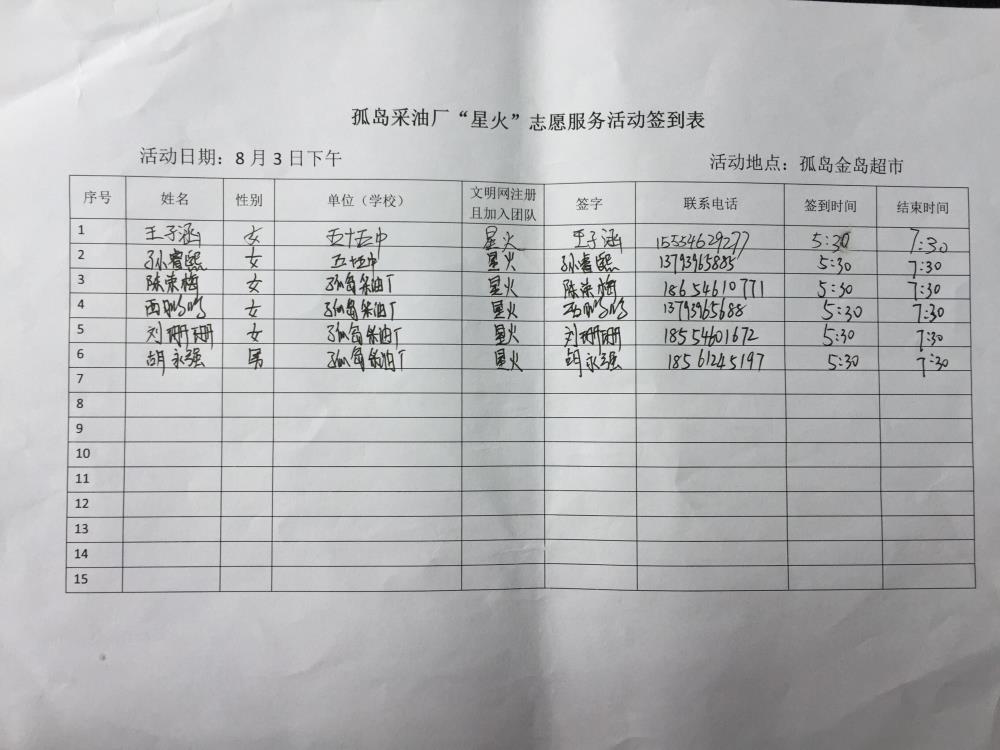 孤岛采油厂“星火”志愿服务活动签到表
活动日期：8月3日下午 活动地点：孤岛金岛超市
序号 姓名 性别 单位（学校） 文明网注册且加入团队 签字 联系电话 签到时间 结束时间
1 王子涵 女 五十五中 星火 王子涵 15554629277 5:30 7:30
2 孙睿熙 女 五十五中 星火 孙睿熙 13793965885 5:30 7:30
3 陈荣梅 女 孤岛采油厂 星火 陈荣梅 18654610771 5:30 7:30
4 女 孤岛采油厂 星火 13793965688 5:30 7:30
5 刘珊珊 女 孤岛采油厂 星火 刘珊珊 18554601672 5:30 7:30
6 胡永强 男 孤岛采油厂 星火 胡永强 18561245197 5:30 7:30
7
8
9
10
11
12
13
14
15